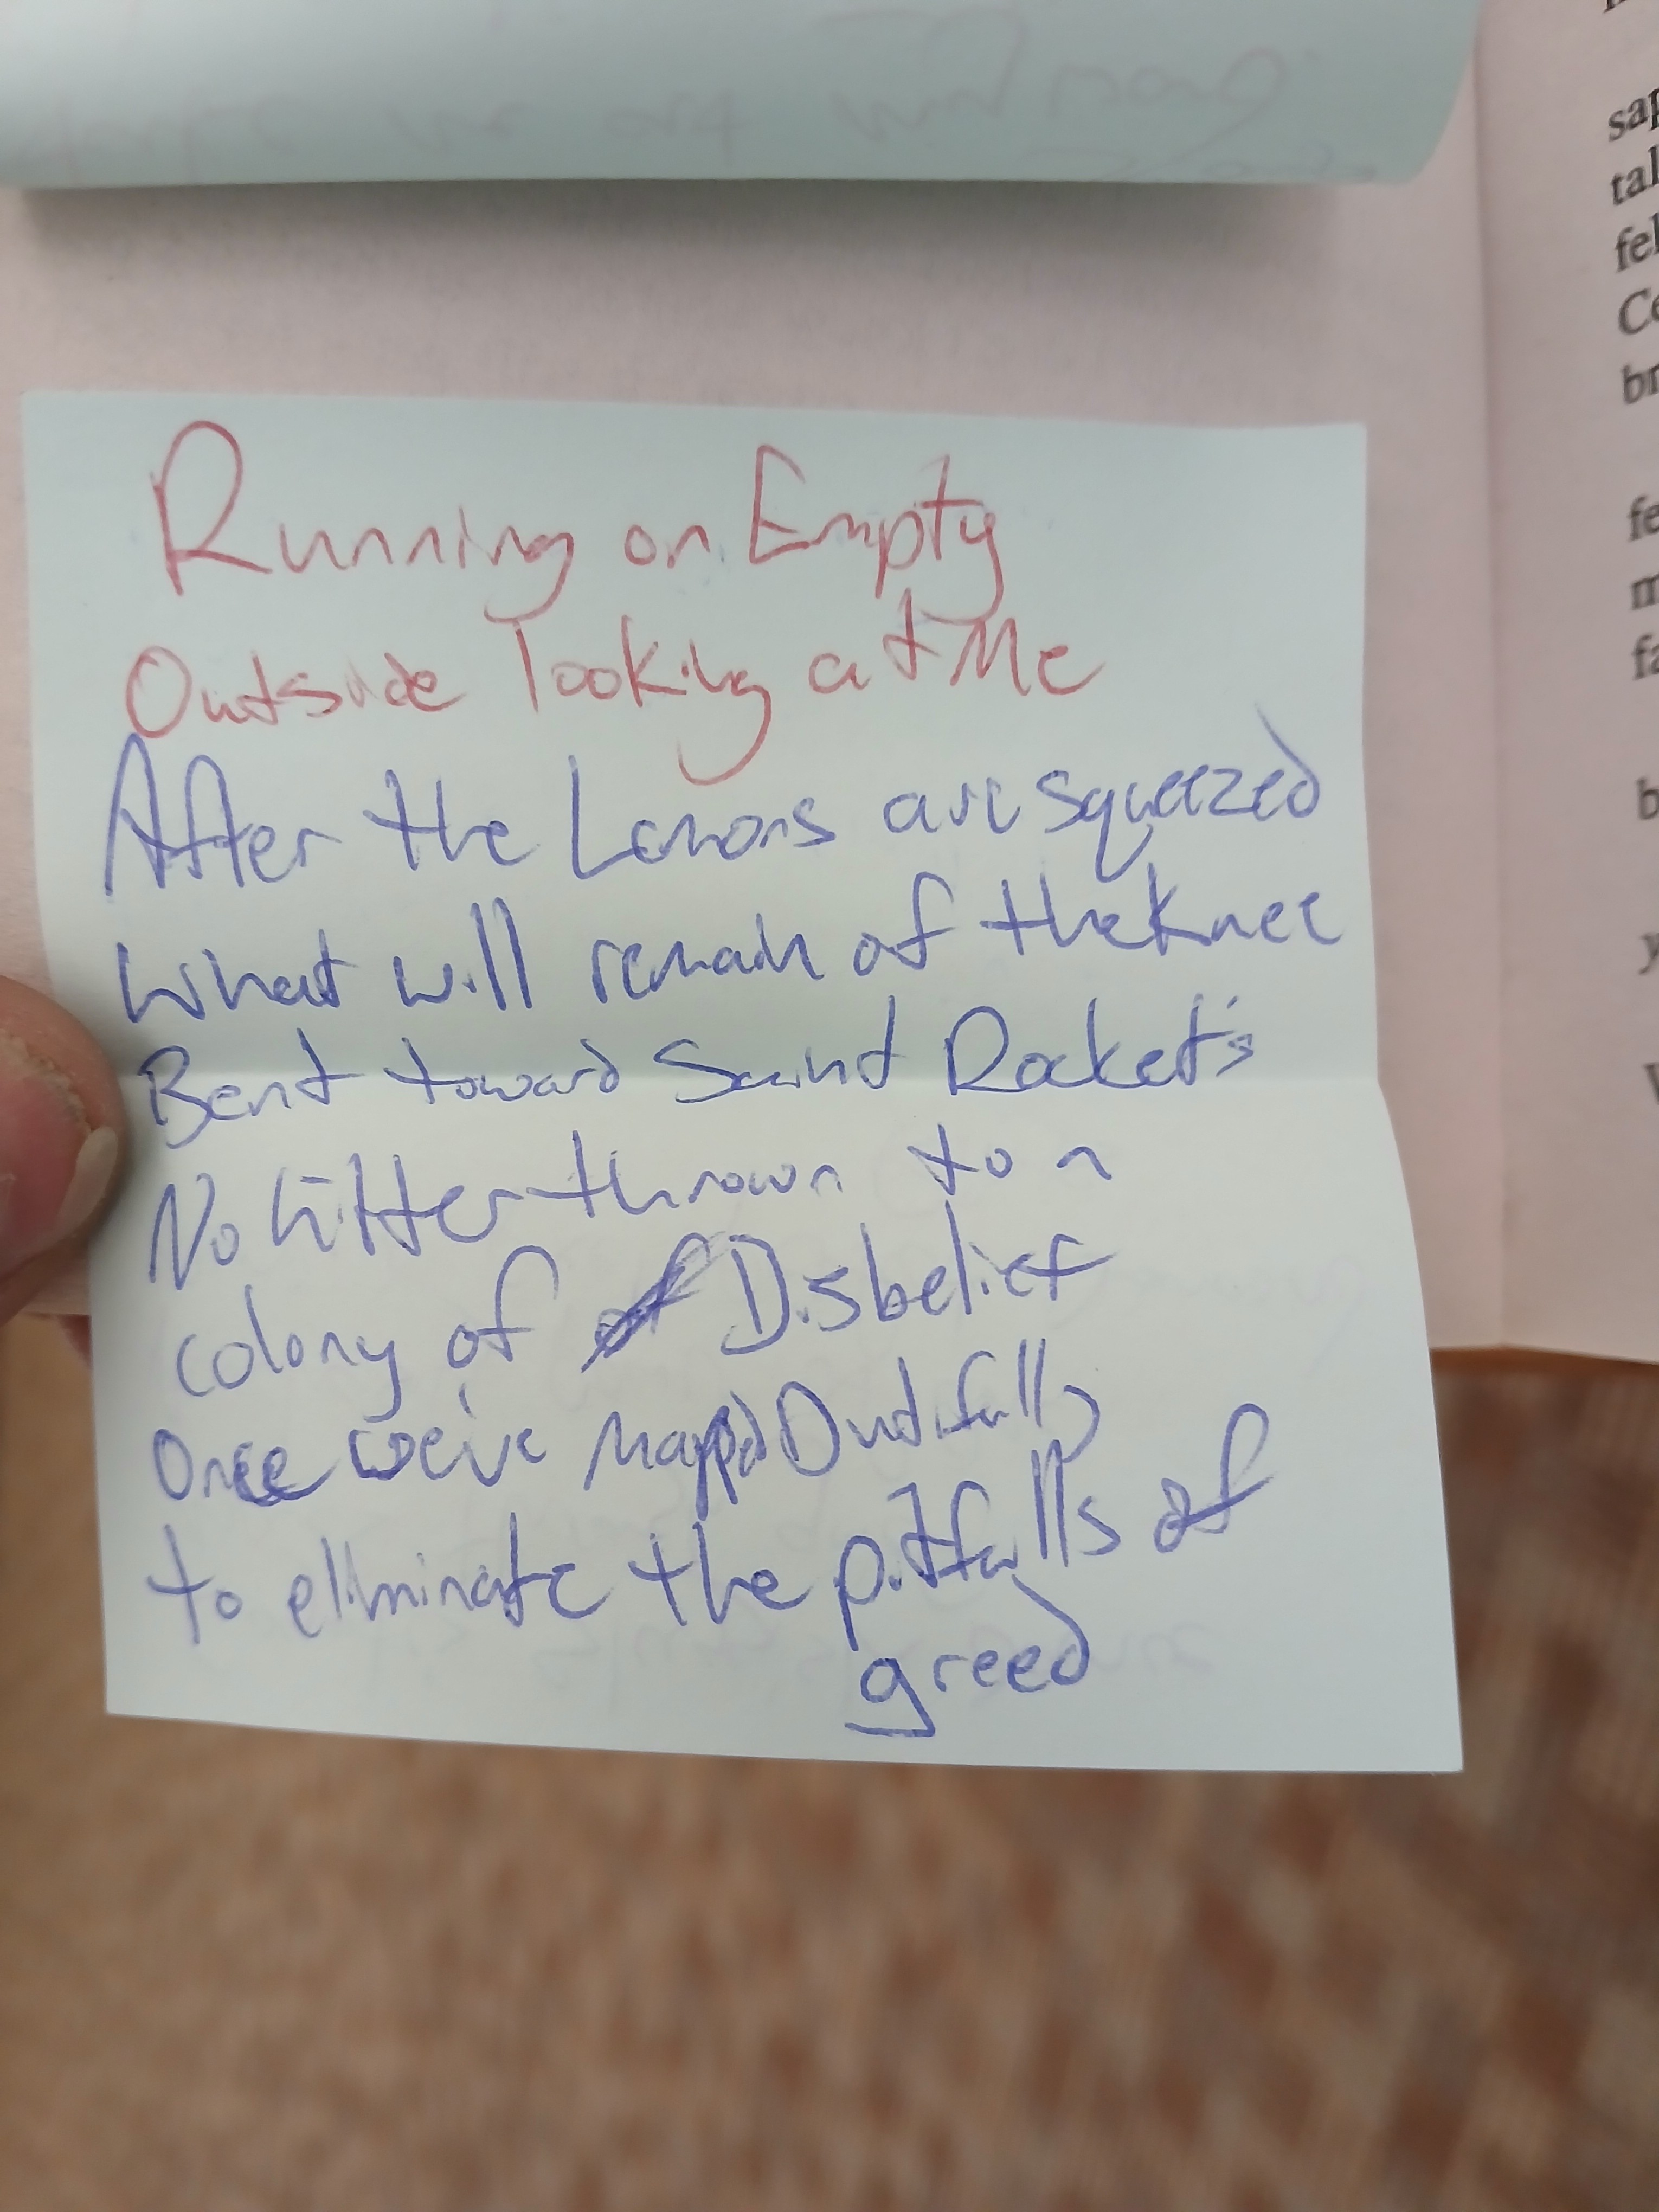 sap
tal
fel
Ce
br
fe
m
fa
b
y
Running on Empty
Outside looking at Me
After the Lemons are squeezed
What will remain of the Knee
Bent toward Saint Rocket's
No litter thrown to a
colony of Disbelief
Once we've mapp'd Dutifully
to eliminate the pitfalls of
greed